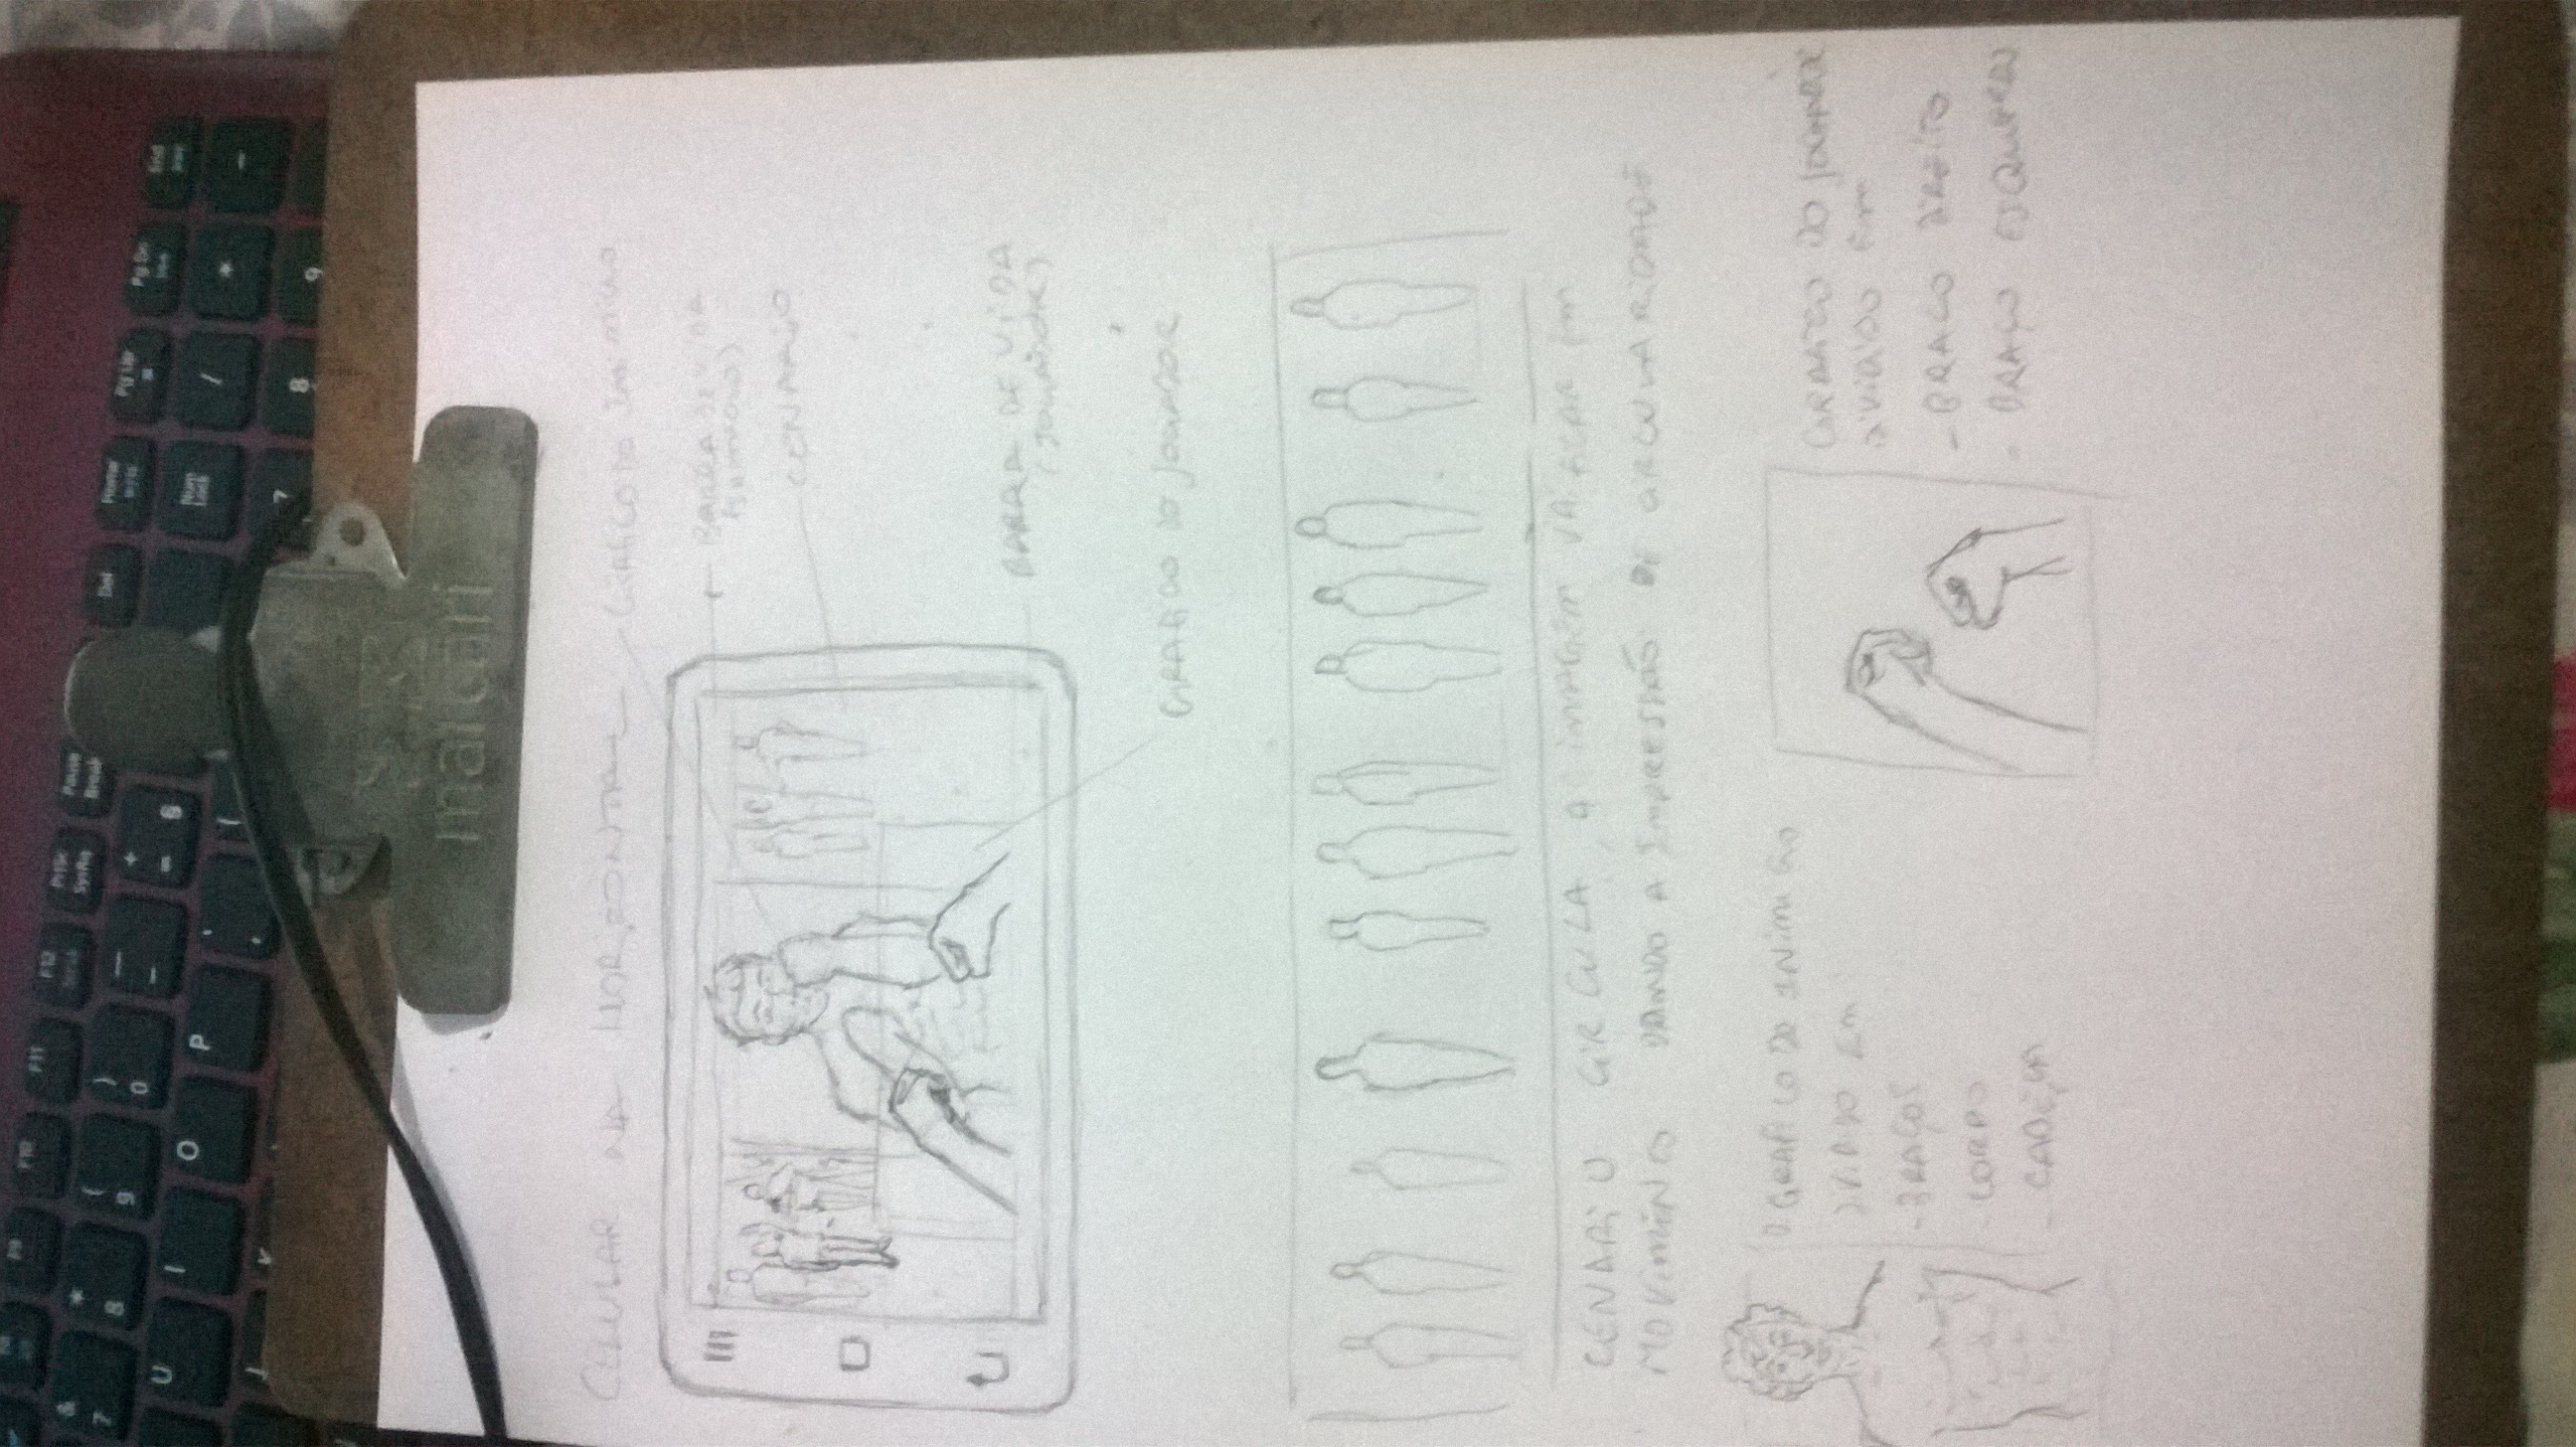 F9
F10
F11
F12
PrtSc
SysRq
Pause
Break
Del
Home
Pg Up
Pg Dn
End
&
7
*
8
(
9
)
0
—
-
+
=
§
Num
Lock
/
*
-
U
I
O
P
7
8
9
malcari
CELULAR NA HORIZONTAL
GRAFICO DO INIMIGO
BARRA DE VIDA
CENARIO
BARRA DE VIDA
(JOGADOR)
GRAFICO DO JOGADOR
CENARIO CIRCULA, A IMAGEM VAI FICAR EM
MOVIMENTO DANDO A IMPRESSÃO DE CIRCULARIDADE
GRAFICO DO INIMIGO
DIVIDIDO EM
- BRAÇOS
- CORPO
- CABEÇA
GRAFICO DO JOGADOR
DIVIDIDO EM
- BRAÇO DIREITO
- BRAÇO ESQUERDO